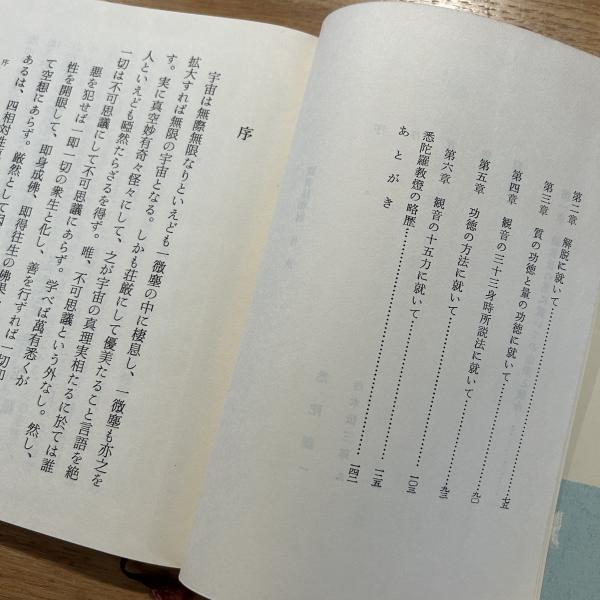 第二章　解脱に就いて
第三章　質の功徳と量の功徳に就いて……七五
第四章　観音の三十三身時所説法に就いて……九〇
第五章　功徳の方法に就いて……九三
第六章　観音の十五力に就いて……一〇三
悉陀羅教燈の略歴……一二五
あとがき……一四二
序
宇宙は無際無限なりといえども一微塵の中に棲息し、一微塵も亦之を
拡大すれば無限の宇宙となる。しかも荘厳にして優美たること言語を絶
す。実に真空妙有奇々怪々にして、之が宇宙の真理実相たるに於ては誰
人といえども啞然たらざるを得ず。唯、不可思議という外なし。然し、
一切は不可思議にして不可思議にあらず。学べば萬有悉くが
悪を犯せば一即一切の衆生と化し、善を行ずれば一切即
性を開眼して、即身成佛、即得往生の佛果
て空想にあらず。厳然として
あるは、四相対性
序